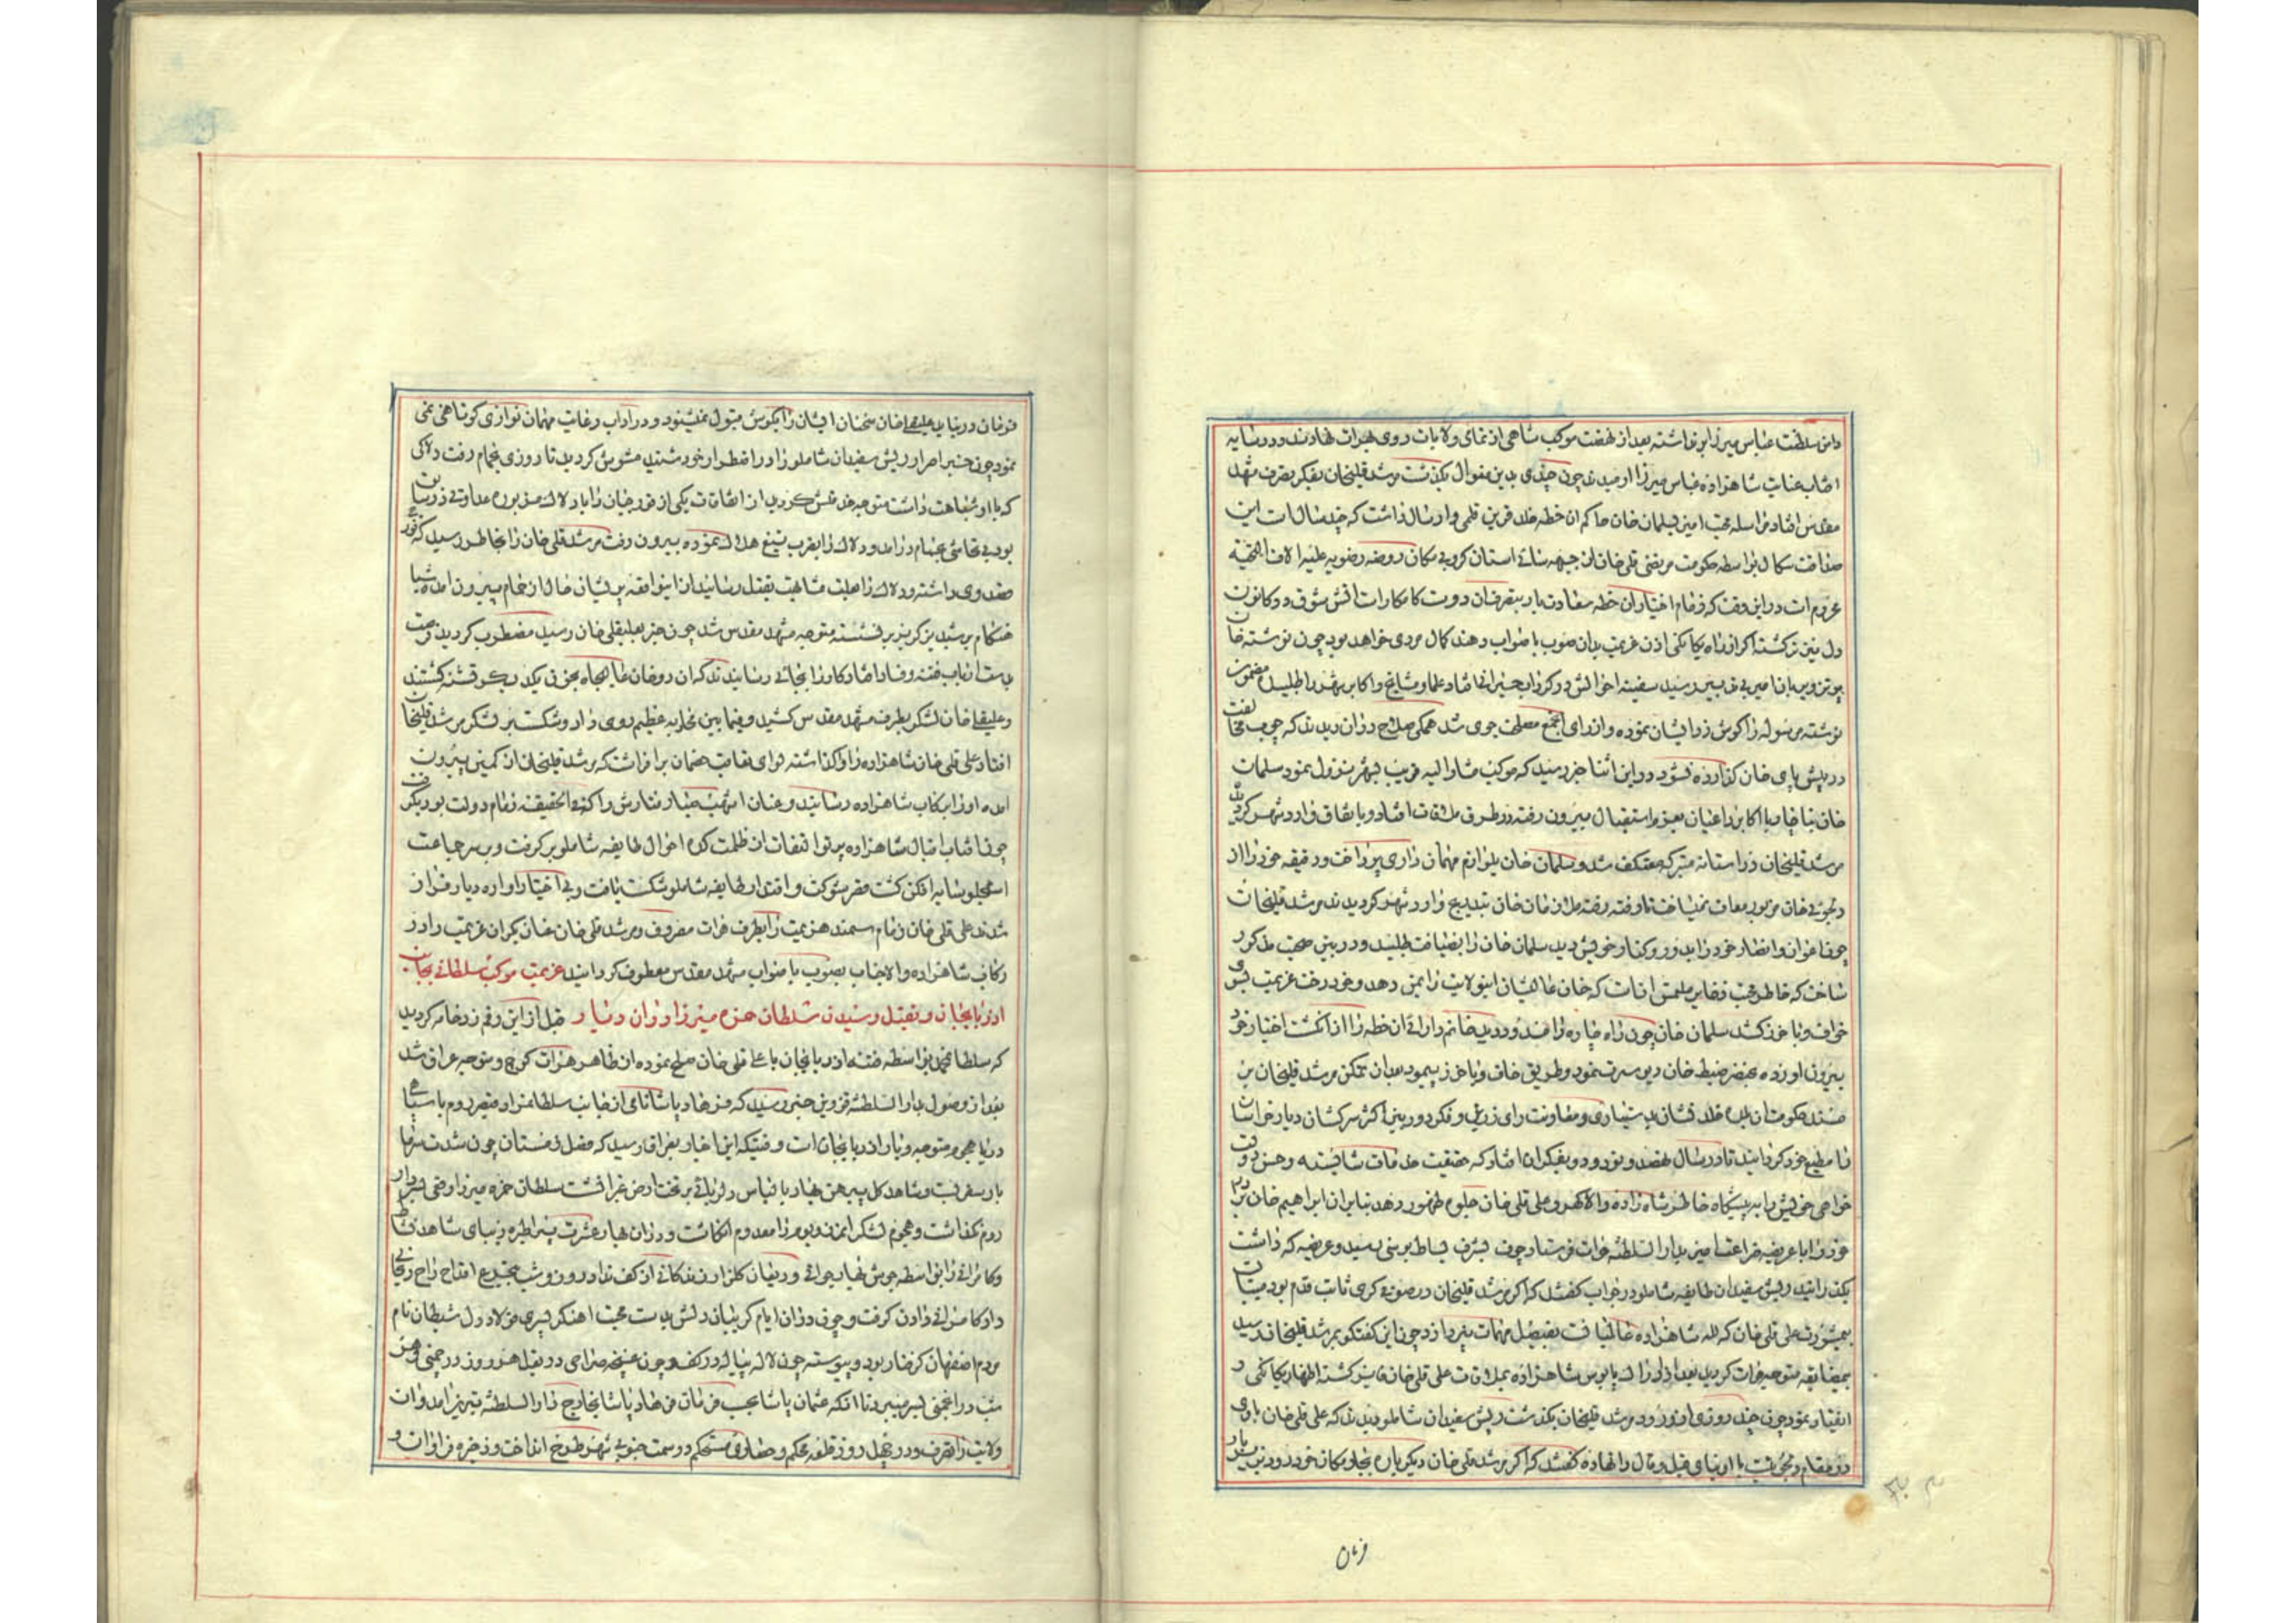 دامن سلطنت عباس میرزا برنداشته بعد از نهضت موکب شاهی از تمامی ولایات روی بهرات نهادند و در سایه
افتاب عنایت شاهزاده عباس میرزا ارمیدند چون چندی بدین منوال بگذشت مرشد قلیخان بفکر تصرف مشهد
مقدس افتاد مراسله محبت امیز بسلمان خان حاکم ان خطه خلد قرین قلمی و ارسال داشت که چند سال است این
صداقت سکال بواسطه حکومت مرتضی قلی خان از جبهه سائی استان کروبی مکان روضه رضویه علیه الاف التحیه
محروم است در این وقت که زمام اختیار ان خطه سعادت بار بتصرف ان دوست کامکار است اتش شوق در کانون
دل تیز تر کشته اکر از راه یکانکی اذن عزیمت بدان صوب با صواب دهند کمال مردی خواهد بود چون نوشته خان
پر تزویر بان امیر بی تدبیر رسید سفینه احوالش در کرداب حیرانی افتاد علما و مشایخ و اکابر شهر را طلبیده مضمون
نوشته مرسوله را کوش زد ایشان نموده و از رای انجمع مصلحت جوی شد همکی صلاح دران دیدند که چوب مخالفت
در پیش پای خان کذارده نشود در این اثنا خبر رسید که موکب مشار الیه قریب بشهر نزول نمود سلمان
خان ناچار با اکابر و اعیان بعزم استقبال بیرون رفته در طرق ملاقات افتاد و باتفاق وارد شهر کردید
مرشد قلیخان در استانه متبرکه معتکف شد و سلمان خان بلوازم مهمان داری پرداخت و دقیقه خود را از
دلجوئی خان مزبور معاف نمیساخت تا رفته رفته ملازمان خان بتدریج وارد شهر کردیدند مرشد قلیخان
چون اعوان و انصار خود را بدور و کنار خویش دید سلمان خان را بضیافت طلبید و در بین صحبت مذکور
ساخت که خاطر محبت ذخایر ملتمس انست که خان عالیشان اینولایت را بمن دهد و خود رخت عزیمت بسوی
خواف و باخرز کشد سلمان خان چون راه چاره را مسدود دید خاتم دارائی ان خطه را از انکشت اختیار خود
بیرون اورده بخنصر ضبط خان دیو سیرت نمود و طریق خاف و باخرز پیمود بعد از ان تمکن مرشد قلیخان بر
مسند حکومت ان بلده خلد نشان بدستیاری و معاونت رای زرین و فکر دوربین اکثر سرکشان دیار خراسان
را مطیع خود کردانید تا در سال نهصد و نود و دو بفکر ان افتاد که حقیقت خدمات شایسته و حسن دولت
خواهی خویش را به پیشکاه خاطر شاه زاده والا کهر و علی قلی خان جلوه ظهور دهد بنابر ان ابراهیم خان برادر
خود را با عریضه ضراعت امیز بدار السلطنه هرات فرستاد چون بشرف بساط بوسی رسید و عریضه که داشت
بکذرانید ریش سفیدان طایفه شاملو در جواب کفتند که اکر مرشد قلیخان در صوفی کری ثابت قدم بود میبایست
بمشورت علی قلی خان که لله شاهزاده عالمیانست بفیصل مهمات پردازد چون این کفتکو بمرشد قلیخان رسید
بمضایقه متوجه هرات کردید بعد از ادراک پابوس شاهزاده بملاقات علی قلی خان فایز کشته اظهار یکانکی و
انقیاد نمود چون چند روزی از ورود مرشد قلیخان بکذشت ریش سفیدان شاملو دیدند که علی قلی خان با وی
در مقام دلجوئیست با او بنای قیل و قال را نهاده کفتند که اکر مرشد قلی خان دیکر باره بجا و مکان خود رود زین بار
فرمان
فرمان در نیاید علیقلی خان سخنان ایشان را بکوش قبول نمیشنود و در اداب رعایت مهمان نوازی کوتاهی نمی
نمود چون خبر اصرار ریش سفیدان شاملو را در افطوار خود شنید مشوش کردید تا روزی بحمام رفت دلاکی
که با او شباهت داشت متوجه خدمتش کردید از اتفاقات یکی از قورچیان را با دلاک مزبوره عداوتی در میان
بود بی تحاشی بحمام درامد و دلاک را بضرب تیغ هلاک نموده بیرون رفت مرشد قلی خان را بخاطر رسید که قورچی
قصد وی داشته و دلاک را بعلت مشابهت بقتل رسانید از اینواقعه پریشان حال از حمام بیرون امده شبا
هنکام بر شبدیز کریز بر نشسته متوجه مشهد مقدس شد چون خبر بعلیقلی خان رسید مضطرب کردید فرصت
بدست ارباب فتنه و فساد افتاد کار را بجائی رسانیدند که ان دو خان عالیجاه بخون یکدیکر تشنه کشتند
و علیقلی خان لشکر بطرف مشهد مقدس کشید و فیمابین محاربه عظیم روی داد و شکست بر لشکر مرشد قلیخان
افتاد علی قلی خان شاهزاده را واکذاشته لوای تعاقب خصمان برافراشت که مرشد قلیخان از کمین بیرون
امده او را برکاب شاهزاده رسانید و عنان اشهب صبا رفتارش را که فی الحقیقه زمام دولت بود بکرفت
چون افتاب اقبال شاهزاده پرتو التفات از ظلمت کده احوال طایفه شاملو برکرفت و بر سر جماعت
استجلو سایه افکن کشت قصر شوکت و اقتدار طایفه شاملو شکست یافت و بی اختیار اواره دیار فرار
شدند علی قلی خان زمام سمند هزیمت را بطرف هرات مصروف و مرشد قلی خان عنان یکران عزیمت را در
رکاب شاهزاده والا جناب بصوب با صواب مشهد مقدس معطوف کردانید عزیمت موکب سلطانی بجانب
اذربایجان و بقتل رسیدن سلطان حمزه میرزا در ان دیار قبل از این رقم زد خامه کردید
که سلطان محمد بواسطه فتنه اذربایجان با علی قلی خان صلح نموده از ظاهر هرات کوچ و متوجه عراق شد
بعد از وصول بدار السلطنه قزوین خبر رسید که فرهاد پاشا نامی از جانب سلطانمراد قیصر روم با سپاهی
دریا هجوم متوجه دیار اذربایجان است و قتیکه این اخبار بعراق رسید که فصل زمستان چون شدت سرما
بار سفر بست و شاهد کل پیرهن بهار با لباس دلربائی بر تخت ارض غبرا نشست سلطان حمزه میرزا وقعی بسردار
روم نکذاشت و هجوم لشکر انمرزوبوم را معدوم انکاشت و در ان بهار عشرت پیرا طره زیبای شاهد نشاط
وکامرانی را بواسطه جوش بهار جوانی و ریعان کلزار زندکانی از کف نداد روز و شب بتجرع اقداح راح ریحانی
داد کامرانی دادن کرفت و چون در ان ایام کریبان دلش بدست محبت اهنکر پسری فولاد دل شیطان نام
مردم اصفهان کرفتار بود و پیوسته چون لاله پیاله در کف و چون غنچه صراحی در بغل هر روز در چمنی و هر
شب در انجمنی بسر میبرد تا انکه عثمان پاشا بحسب فرمان فرهاد پاشا بخارج دار السلطنه تبریز امد و ان
ولایت را تصرف و در چهل روز قلعه محکم و حصاری مستحکم در سمت جنوبی شهر طرح انداخت و ذخیره فراوان و